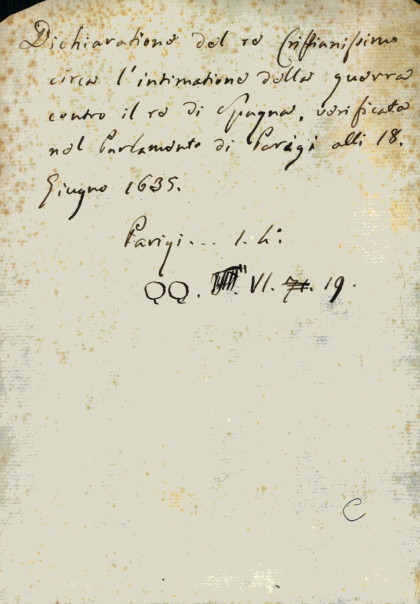 Dichiaratione del re Cristianissimo
circa l'intimatione della guerra
contro il re di Spagna, verificata
nel Parlamento di Parigi alli 18.
Giugno 1635.
Parigi... 1. h:
QQ. VI. 19.
C